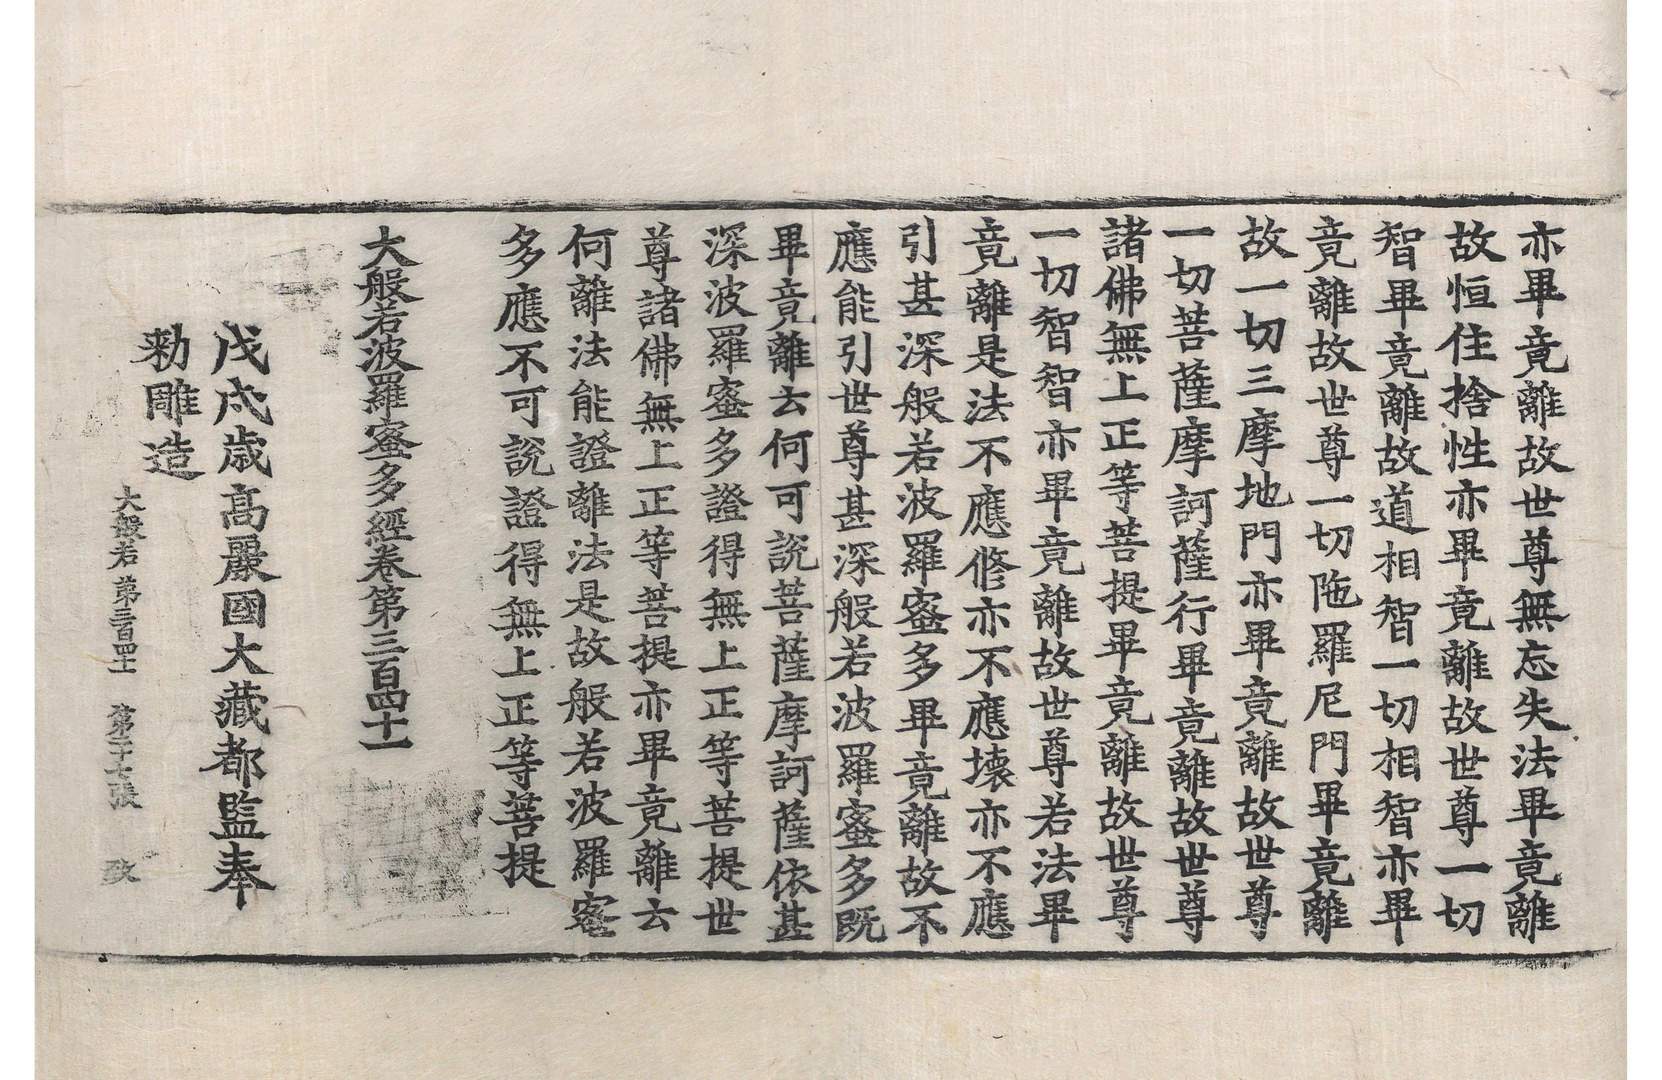 亦畢竟離故世尊無忘失法畢竟離
故恒住捨性亦畢竟離故世尊一切
智畢竟離故道相智一切相智亦畢
竟離故世尊一切陁羅尼門畢竟離
故一切三摩地門亦畢竟離故世尊
一切菩薩摩訶薩行畢竟離故世尊
諸佛無上正等菩提畢竟離故世尊
一切智智亦畢竟離故世尊若法畢
竟離是法不應修亦不應壞亦不應
引甚深般若波羅蜜多畢竟離故不
應能引世尊甚深般若波羅蜜多既
畢竟離云何可說菩薩摩訶薩依甚
深波羅蜜多證得無上正等菩提世
尊諸佛無上正等菩提亦畢竟離云
何離法能證離法是故般若波羅蜜
多應不可說證得無上正等菩提
大般若波羅蜜多經卷第三百四十一
戊戌歲高麗國大藏都監奉
勑雕造
大般若第三百四十一 第二十七張